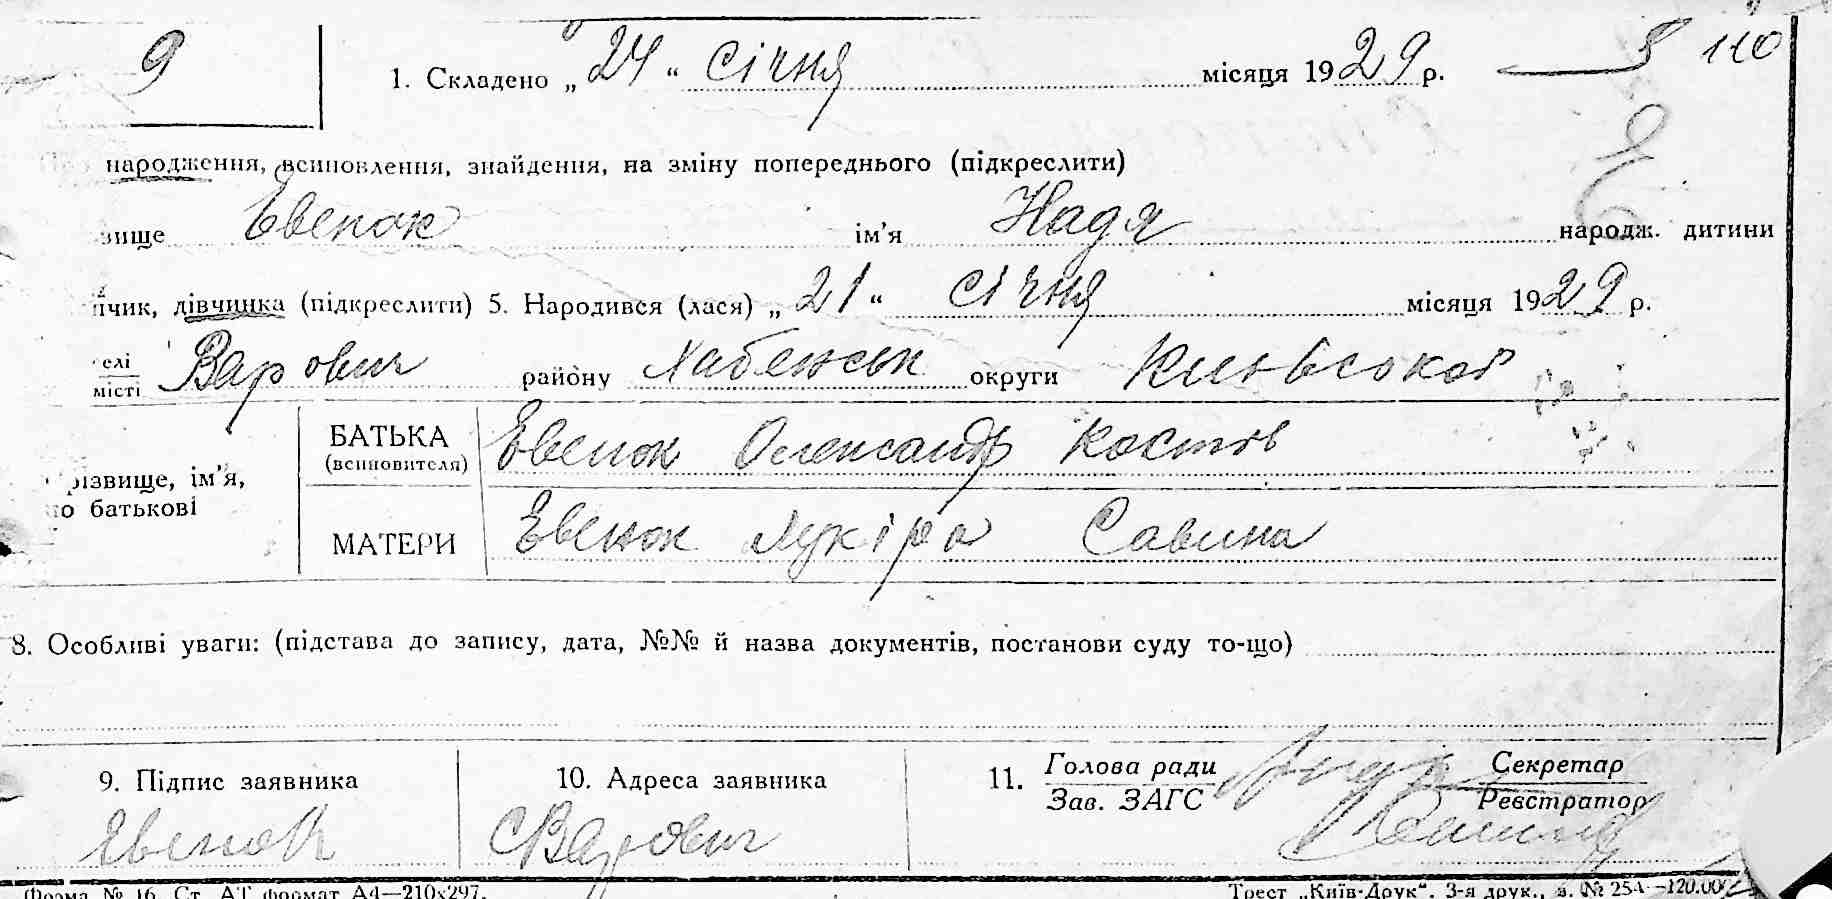 9
1. Складено „ 24 “ січня місяця 1929 р. 5 110
народження, всиновлення, знайдення, на зміну попереднього (підкреслити)
Е
звище Евенок ім’я Надя народж. дитини
пчик, дівчинка (підкреслити) 5. Народився (лася) „ 21 “ січня місяця 1929 р.
селі
місті Варович району Хабенськ округи Киівської
БАТЬКА Евенок Олександр Костів
(всиновителя)
різвище, ім’я,
по батькові
МАТЕРИ Евенок Лукіра Савина
8. Особливі уваги: (підстава до запису, дата, №№ й назва документів, постанови суду то-що)
9. Підпис заявника 10. Адреса заявника 11. Голова ради Секретар
Зав. ЗАГС Реєстратор
Евенок С Варович
Форма № 16. Ст. АТ формат А4—210х297. Трест „Київ-Друк“. 3-я друк., з. № 254—120.00